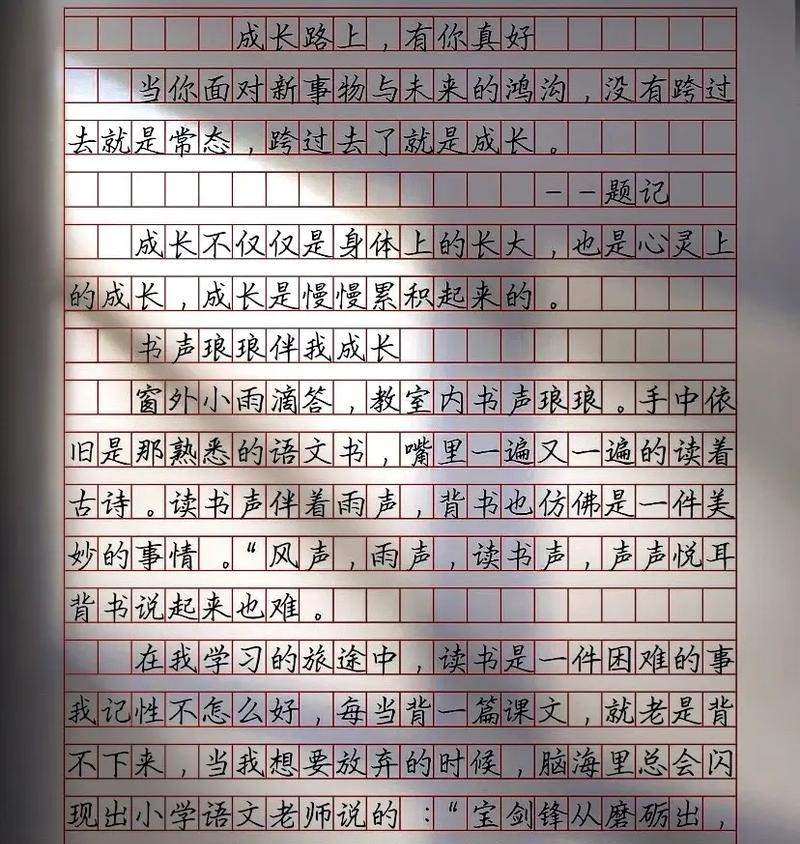 成长路上，有你真好
当你面对新事物与未来的鸿沟，没有跨过
去就是常态，跨过去了就是成长。
——题记
成长不仅仅是身体上的长大，也是心灵上
的成长，成长是慢慢累积起来的。
书声琅琅伴我成长
窗外小雨滴答，教室内书声琅琅。手中依
旧是那熟悉的语文书，嘴里一遍又一遍的读着
古诗。读书声伴着雨声，背书也仿佛是一件美
妙的事情。“风声，雨声，读书声，声声悦耳
背书说起来也难。
在我学习的旅途中，读书是一件困难的事
我记性不怎么好，每当背一篇课文，就老是背
不下来，当我想要放弃的时候，脑海里总会闪
现出小学语文老师说的：“宝剑锋从磨砺出，